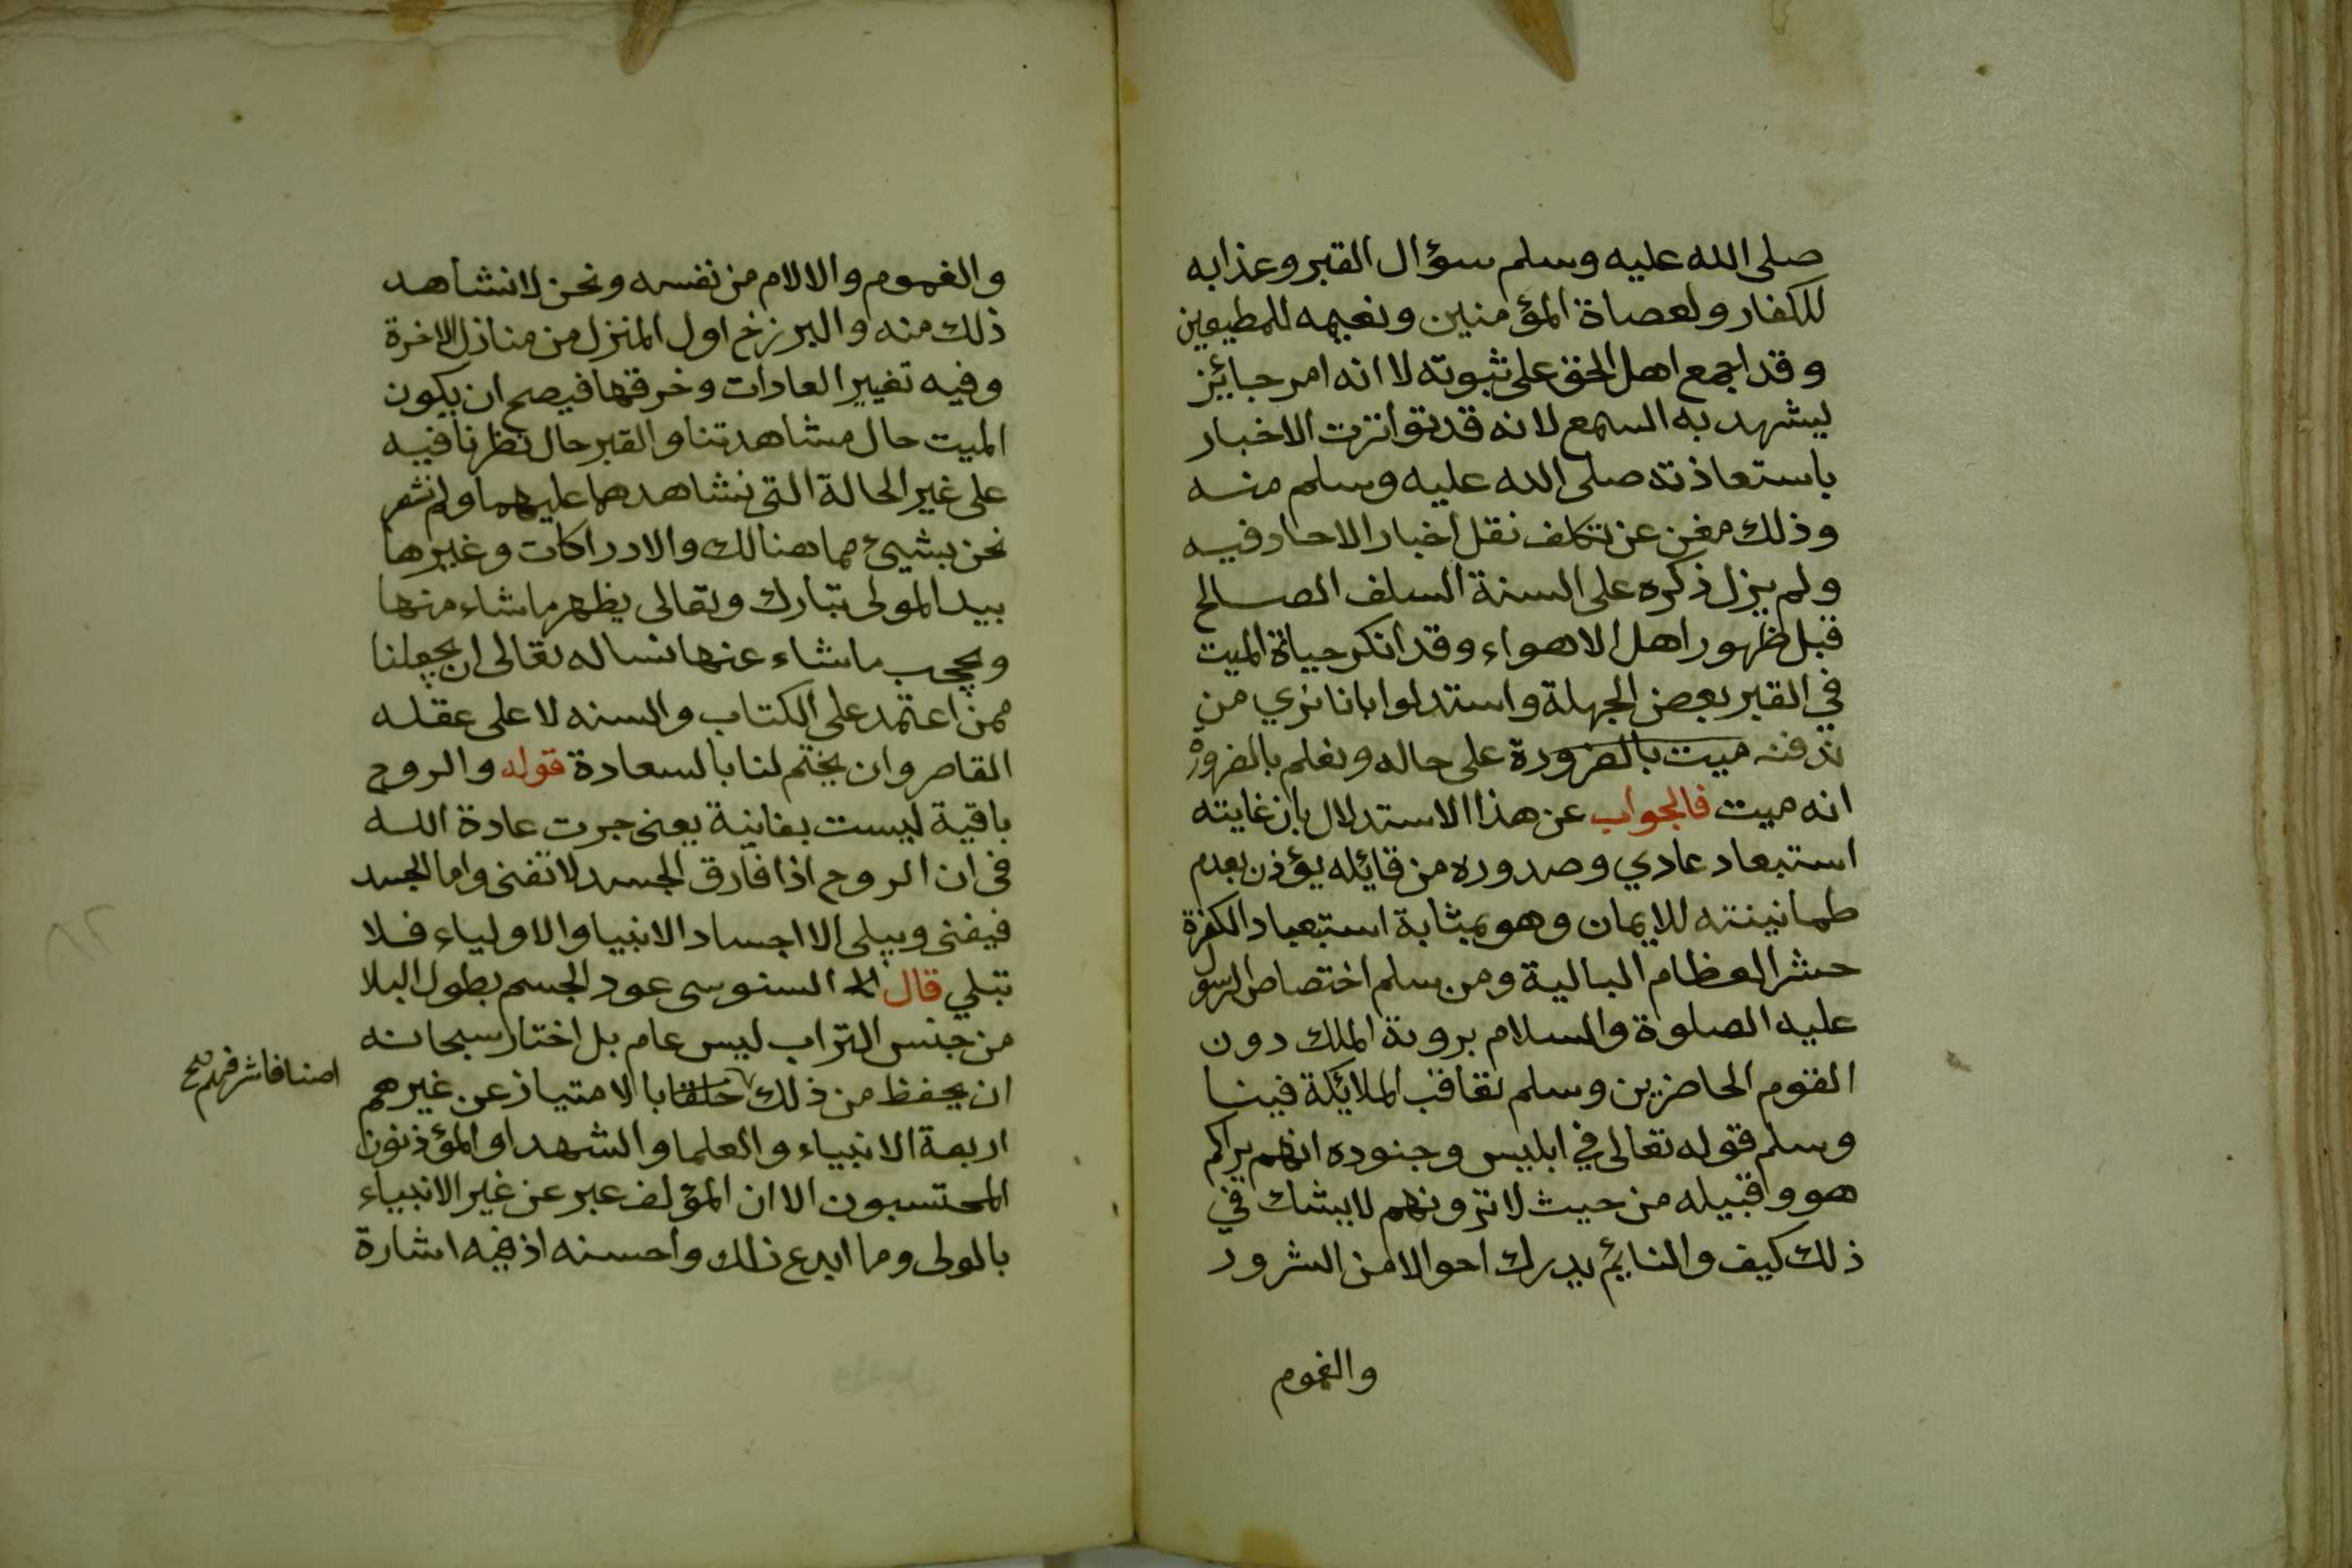 صلى الله عليه وسلم سؤال القبر وعذابه
للكفار ولعصاة المؤمنين ونعيمه للمطيعين
وقد اجمع اهل الحق على ثبوته لا انه امر جبائيز
ليشهد به السمع لانه قد تواترت الاخبار
باستعاذته صلى الله عليه وسلم منه
وذلك مغن عن تكلف نقل اخبار الاحاد فيه
ولم يزل ذكره على السنة السلف الصالح
قبل ظهور اهل الاهواء وقد انكر حياة الميت
في القبر بعض الجهلة واستدلوا بانا نري من
ندفنه ميت بالضرورة على حاله ونعلم بالضرورة
انه ميت فالجواب عن هذا الاستدلال بان غايته
استبعاد عادي وصدوره من قائله يؤذن بعدم
طمانينته للايمان وهو بمثابة استبعاد الكفرة
حشر العظام البالية ومن سلم اختصاص الرسول
عليه الصلوة والسلام بروية الملك دون
القوم الحاضرين وسلم تعاقب الملائكة فينا
وسلم قوله تعالى في ابليس وجنوده انهم يراكم
هو وقبيله من حيث لا ترونهم لا يشك في
ذلك كيف والنايم يدرك احوالا من السرور
والغموم
والغموم والالام من نفسه ونحن لا نشاهد
ذلك منه والبرزخ اول المنزل من منازل الاخرة
وفيه تغيير العادات وخرقها فيصح ان يكون
الميت حال مشاهدتنا والقبر حال نظرنا فيه
على غير الحالة التى نشاهدهما عليهما ولم نشعر
نحن بشيئ مما هنالك والادراكات وغيرها
بيد المولى تبارك وتعالى يظهر ما شاء منها
ويحجب ما شاء عنها نساله تعالى ان يجعلنا
ممن اعتمد على الكتاب والسنه لا على عقله
القاصر وان يختم لنا بالسعادة قوله والروح
باقية ليست بفانية يعنى جرت عادة الله
فى ان الروح اذا فارق الجسد لا تفنى واما الجسد
فيفنى ويبلى الا اجساد الانبيا والاولياء فلا
تبلي قال السنوسى عود الجسم بطول البلا
من جنس التراب ليس عام بل اختار سبحانه
ان يحفظ من ذلك خلقا بالامتياز عن غيرهم
اصنافا شرفهم صح
اربعة الانبياء والعلما والشهدا والمؤذنون
المحتسبون الا ان المؤلف عبر عن غير الانبياء
بالولى وما ابدع ذلك واحسنه اذ فيه اشارة